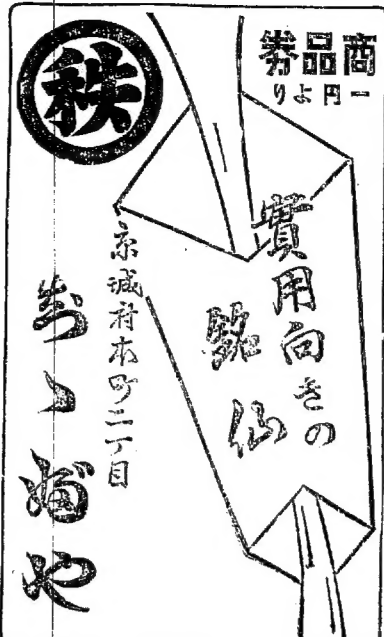 商品券
一円より
實用向きの
銘仙
秩
京城府本町二丁目
ちゝぶや